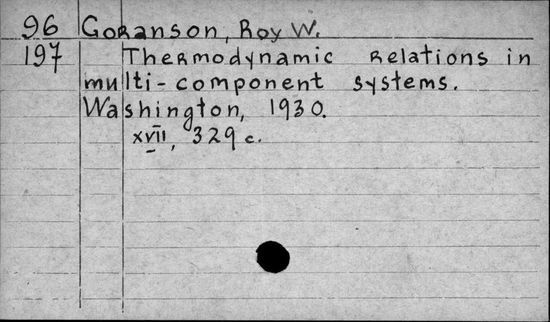 96 Goranson, Roy W.
197 Thermodynamic Relations in
multi-component systems.
Washington, 1930.
xvii, 329 c.